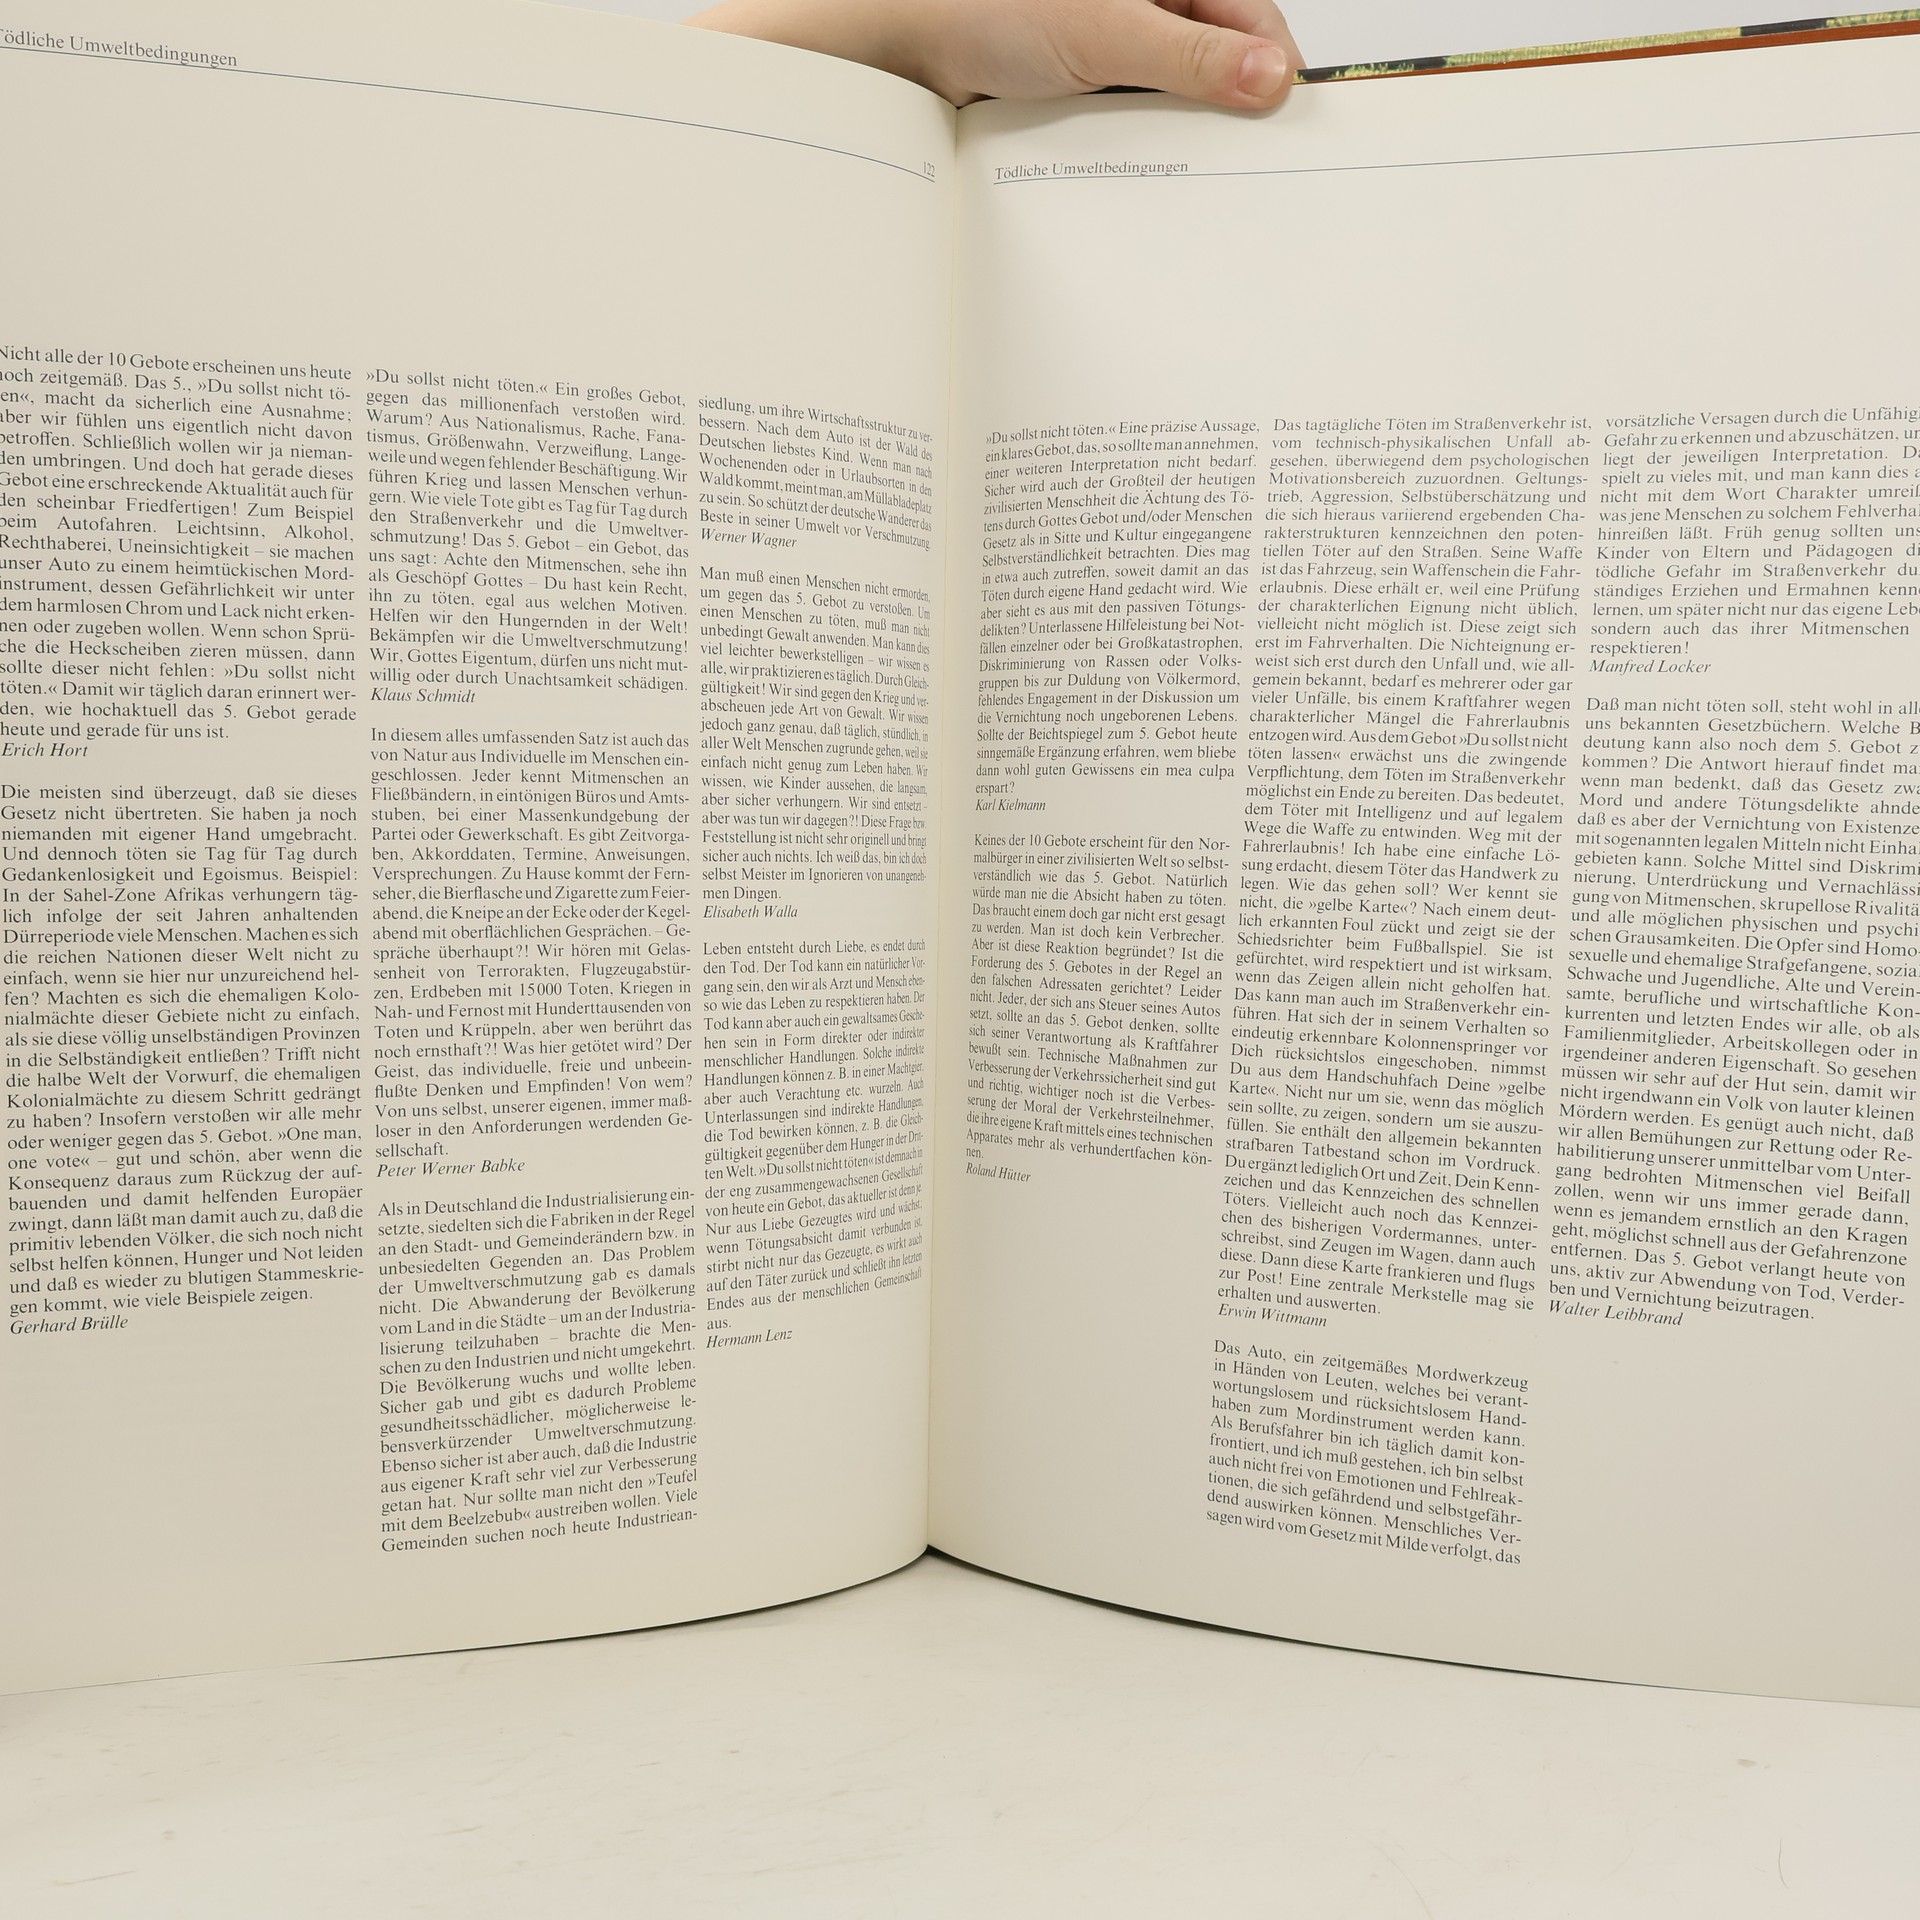 Tödliche Umweltbedingungen
122
Nicht alle der 10 Gebote erscheinen uns heute
noch zeitgemäß. Das 5., »Du sollst nicht tö-
ten«, macht da sicherlich eine Ausnahme;
aber wir fühlen uns eigentlich nicht davon
betroffen. Schließlich wollen wir ja nieman-
den umbringen. Und doch hat gerade dieses
Gebot eine erschreckende Aktualität auch für
den scheinbar Friedfertigen! Zum Beispiel
beim Autofahren. Leichtsinn, Alkohol,
Rechthaberei, Uneinsichtigkeit – sie machen
unser Auto zu einem heimtückischen Mord-
instrument, dessen Gefährlichkeit wir unter
dem harmlosen Chrom und Lack nicht erken-
nen oder zugeben wollen. Wenn schon Sprü-
che die Heckscheiben zieren müssen, dann
sollte dieser nicht fehlen: »Du sollst nicht
töten.« Damit wir täglich daran erinnert wer-
den, wie hochaktuell das 5. Gebot gerade
heute und gerade für uns ist.
Erich Hort
Die meisten sind überzeugt, daß sie dieses
Gesetz nicht übertreten. Sie haben ja noch
niemanden mit eigener Hand umgebracht.
Und dennoch töten sie Tag für Tag durch
Gedankenlosigkeit und Egoismus. Beispiel:
In der Sahel-Zone Afrikas verhungern täg-
lich infolge der seit Jahren anhaltenden
Dürreperiode viele Menschen. Machen es sich
die reichen Nationen dieser Welt nicht zu
einfach, wenn sie hier nur unzureichend hel-
fen? Machten es sich die ehemaligen Kolo-
nialmächte dieser Gebiete nicht zu einfach,
als sie diese völlig unselbständigen Provinzen
in die Selbständigkeit entließen? Trifft nicht
die halbe Welt der Vorwurf, die ehemaligen
Kolonialmächte zu diesem Schritt gedrängt
zu haben? Insofern verstoßen wir alle mehr
oder weniger gegen das 5. Gebot. »One man,
one vote« – gut und schön, aber wenn die
Konsequenz daraus zum Rückzug der auf-
bauenden und damit helfenden Europäer
zwingt, dann läßt man damit auch zu, daß die
primitiv lebenden Völker, die sich noch nicht
selbst helfen können, Hunger und Not leiden
und daß es wieder zu blutigen Stammeskrie-
gen kommt, wie viele Beispiele zeigen.
Gerhard Brülle
»Du sollst nicht töten.« Ein großes Gebot,
gegen das millionenfach verstoßen wird.
Warum? Aus Nationalismus, Rache, Fana-
tismus, Größenwahn, Verzweiflung, Lange-
weile und wegen fehlender Beschäftigung. Wir
führen Krieg und lassen Menschen verhun-
gern. Wie viele Tote gibt es Tag für Tag durch
den Straßenverkehr und die Umweltver-
schmutzung! Das 5. Gebot – ein Gebot, das
uns sagt: Achte den Mitmenschen, sehe ihn
als Geschöpf Gottes – Du hast kein Recht,
ihn zu töten, egal aus welchen Motiven.
Helfen wir den Hungernden in der Welt!
Bekämpfen wir die Umweltverschmutzung!
Wir, Gottes Eigentum, dürfen uns nicht mut-
willig oder durch Unachtsamkeit schädigen.
Klaus Schmidt
In diesem alles umfassenden Satz ist auch das
von Natur aus Individuelle im Menschen ein-
geschlossen. Jeder kennt Mitmenschen an
Fließbändern, in eintönigen Büros und Amts-
stuben, bei einer Massenkundgebung der
Partei oder Gewerkschaft. Es gibt Zeitvorga-
ben, Akkorddaten, Termine, Anweisungen,
Versprechungen. Zu Hause kommt der Fern-
seher, die Bierflasche und Zigarette zum Feier-
abend, die Kneipe an der Ecke oder der Kegel-
abend mit oberflächlichen Gesprächen. – Ge-
spräche überhaupt?! Wir hören mit Gelas-
senheit von Terrorakten, Flugzeugabstür-
zen, Erdbeben mit 15000 Toten, Kriegen in
Nah- und Fernost mit Hunderttausenden von
Toten und Krüppeln, aber wen berührt das
noch ernsthaft?! Was hier getötet wird? Der
Geist, das individuelle, freie und unbeein-
flußte Denken und Empfinden! Von wem?
Von uns selbst, unserer eigenen, immer maß-
loser in den Anforderungen werdenden Ge-
sellschaft.
Peter Werner Babke
Als in Deutschland die Industrialisierung ein-
setzte, siedelten sich die Fabriken in der Regel
an den Stadt- und Gemeinderändern bzw. in
unbesiedelten Gegenden an. Das Problem
der Umweltverschmutzung gab es damals
nicht. Die Abwanderung der Bevölkerung
vom Land in die Städte – um an der Industria-
lisierung teilzuhaben – brachte die Men-
schen zu den Industrien und nicht umgekehrt.
Die Bevölkerung wuchs und wollte leben.
Sicher gab und gibt es dadurch Probleme
gesundheitsschädlicher, möglicherweise le-
bensverkürzender Umweltverschmutzung.
Ebenso sicher ist aber auch, daß die Industrie
aus eigener Kraft sehr viel zur Verbesserung
getan hat. Nur sollte man nicht den »Teufel
mit dem Beelzebub« austreiben wollen. Viele
Gemeinden suchen noch heute Industriean-
siedlung, um ihre Wirtschaftsstruktur zu ver-
bessern. Nach dem Auto ist der Wald des
Deutschen liebstes Kind. Wenn man nach
Wochenenden oder in Urlaubsorten in den
Wald kommt, meint man, am Müllabladeplatz
zu sein. So schützt der deutsche Wanderer das
Beste in seiner Umwelt vor Verschmutzung.
Werner Wagner
Man muß einen Menschen nicht ermorden,
um gegen das 5. Gebot zu verstoßen. Um
einen Menschen zu töten, muß man nicht
unbedingt Gewalt anwenden. Man kann dies
viel leichter bewerkstelligen – wir wissen es
alle, wir praktizieren es täglich. Durch Gleich-
gültigkeit! Wir sind gegen den Krieg und ver-
abscheuen jede Art von Gewalt. Wir wissen
jedoch ganz genau, daß täglich, stündlich, in
aller Welt Menschen zugrunde gehen, weil sie
einfach nicht genug zum Leben haben. Wir
wissen, wie Kinder aussehen, die langsam,
aber sicher verhungern. Wir sind entsetzt –
aber was tun wir dagegen?! Diese Frage bzw.
Feststellung ist nicht sehr originell und bringt
sicher auch nichts. Ich weiß das, bin ich doch
selbst Meister im Ignorieren von unangeneh-
men Dingen.
Elisabeth Walla
Leben entsteht durch Liebe, es endet durch
den Tod. Der Tod kann ein natürlicher Vor-
gang sein, den wir als Arzt und Mensch eben-
so wie das Leben zu respektieren haben. Der
Tod kann aber auch ein gewaltsames Gesche-
hen sein in Form direkter oder indirekter
menschlicher Handlungen. Solche indirekte
Handlungen können z. B. in einer Machtgier,
aber auch Verachtung etc. wurzeln. Auch
Unterlassungen sind indirekte Handlungen,
die Tod bewirken können, z. B. die Gleich-
gültigkeit gegenüber dem Hunger in der Drit-
ten Welt. »Du sollst nicht töten« ist demnach in
der eng zusammengewachsenen Gesellschaft
von heute ein Gebot, das aktueller ist denn je.
Nur aus Liebe Gezeugtes wird und wächst;
wenn Tötungsabsicht damit verbunden ist,
stirbt nicht nur das Gezeugte, es wirkt auch
auf den Täter zurück und schließt ihn letzten
Endes aus der menschlichen Gemeinschaft
aus.
Hermann Lenz
Tödliche Umweltbedingungen
»Du sollst nicht töten.« Eine präzise Aussage,
ein klares Gebot, das, so sollte man annehmen,
einer weiteren Interpretation nicht bedarf.
Sicher wird auch der Großteil der heutigen
zivilisierten Menschheit die Ächtung des Tö-
tens durch Gottes Gebot und/oder Menschen
Gesetz als in Sitte und Kultur eingegangene
Selbstverständlichkeit betrachten. Dies mag
in etwa auch zutreffen, soweit damit an das
Töten durch eigene Hand gedacht wird. Wie
aber sieht es aus mit den passiven Tötungs-
delikten? Unterlassene Hilfeleistung bei Not-
fällen einzelner oder bei Großkatastrophen,
Diskriminierung von Rassen oder Volks-
gruppen bis zur Duldung von Völkermord,
fehlendes Engagement in der Diskussion um
die Vernichtung noch ungeborenen Lebens.
Sollte der Beichtspiegel zum 5. Gebot heute
sinngemäße Ergänzung erfahren, wem bliebe
dann wohl guten Gewissens ein mea culpa
erspart?
Karl Kielmann
Keines der 10 Gebote erscheint für den Nor-
malbürger in einer zivilisierten Welt so selbst-
verständlich wie das 5. Gebot. Natürlich
würde man nie die Absicht haben zu töten.
Das braucht einem doch gar nicht erst gesagt
zu werden. Man ist doch kein Verbrecher.
Aber ist diese Reaktion begründet? Ist die
Forderung des 5. Gebotes in der Regel an
den falschen Adressaten gerichtet? Leider
nicht. Jeder, der sich ans Steuer seines Autos
setzt, sollte an das 5. Gebot denken, sollte
sich seiner Verantwortung als Kraftfahrer
bewußt sein. Technische Maßnahmen zur
Verbesserung der Verkehrssicherheit sind gut
und richtig, wichtiger noch ist die Verbes-
serung der Moral der Verkehrsteilnehmer,
die ihre eigene Kraft mittels eines technischen
Apparates mehr als verhundertfachen kön-
nen.
Roland Hütter
Das tagtägliche Töten im Straßenverkehr ist,
vom technisch-physikalischen Unfall ab-
gesehen, überwiegend dem psychologischen
Motivationsbereich zuzuordnen. Geltungs-
trieb, Aggression, Selbstüberschätzung und
die sich hieraus variierend ergebenden Cha-
rakterstrukturen kennzeichnen den poten-
tiellen Töter auf den Straßen. Seine Waffe
ist das Fahrzeug, sein Waffenschein die Fahr-
erlaubnis. Diese erhält er, weil eine Prüfung
der charakterlichen Eignung nicht üblich,
vielleicht nicht möglich ist. Diese zeigt sich
erst im Fahrverhalten. Die Nichteignung er-
weist sich erst durch den Unfall und, wie all-
gemein bekannt, bedarf es mehrerer oder gar
vieler Unfälle, bis einem Kraftfahrer wegen
charakterlicher Mängel die Fahrerlaubnis
entzogen wird. Aus dem Gebot »Du sollst nicht
töten lassen« erwächst uns die zwingende
Verpflichtung, dem Töten im Straßenverkehr
möglichst ein Ende zu bereiten. Das bedeutet,
dem Töter mit Intelligenz und auf legalem
Wege die Waffe zu entwinden. Weg mit der
Fahrerlaubnis! Ich habe eine einfache Lö-
sung erdacht, diesem Töter das Handwerk zu
legen. Wie das gehen soll? Wer kennt sie
nicht, die »gelbe Karte«? Nach einem deut-
lich erkannten Foul zückt und zeigt sie der
Schiedsrichter beim Fußballspiel. Sie ist
gefürchtet, wird respektiert und ist wirksam,
wenn das Zeigen allein nicht geholfen hat.
Das kann man auch im Straßenverkehr ein-
führen. Hat sich der in seinem Verhalten so
eindeutig erkennbare Kolonnenspringer vor
Dich rücksichtslos eingeschoben, nimmst
Du aus dem Handschuhfach Deine »gelbe
Karte«. Nicht nur um sie, wenn das möglich
sein sollte, zu zeigen, sondern um sie auszu-
füllen. Sie enthält den allgemein bekannten
strafbaren Tatbestand schon im Vordruck.
Du ergänzt lediglich Ort und Zeit, Dein Kenn-
zeichen und das Kennzeichen des schnellen
Töters. Vielleicht auch noch das Kennzei-
chen des bisherigen Vordermannes, unter-
schreibst, sind Zeugen im Wagen, dann auch
diese. Dann diese Karte frankieren und flugs
zur Post! Eine zentrale Merkstelle mag sie
erhalten und auswerten.
Erwin Wittmann
Das Auto, ein zeitgemäßes Mordwerkzeug
in Händen von Leuten, welches bei verant-
wortungslosem und rücksichtslosem Hand-
haben zum Mordinstrument werden kann.
Als Berufsfahrer bin ich täglich damit kon-
frontiert, und ich muß gestehen, ich bin selbst
auch nicht frei von Emotionen und Fehlreak-
tionen, die sich gefährdend und selbstgefähr-
dend auswirken können. Menschliches Ver-
sagen wird vom Gesetz mit Milde verfolgt, das
vorsätzliche Versagen durch die Unfähig
Gefahr zu erkennen und abzuschätzen, un
liegt der jeweiligen Interpretation. Da
spielt zu vieles mit, und man kann dies a
nicht mit dem Wort Charakter umreiß
was jene Menschen zu solchem Fehlverhal
hinreißen läßt. Früh genug sollten uns
Kinder von Eltern und Pädagogen di
tödliche Gefahr im Straßenverkehr du
ständiges Erziehen und Ermahnen kenne
lernen, um später nicht nur das eigene Lebe
sondern auch das ihrer Mitmenschen
respektieren!
Manfred Locker
Daß man nicht töten soll, steht wohl in alle
uns bekannten Gesetzbüchern. Welche B
deutung kann also noch dem 5. Gebot z
kommen? Die Antwort hierauf findet ma
wenn man bedenkt, daß das Gesetz zwa
Mord und andere Tötungsdelikte ahnde
daß es aber der Vernichtung von Existenze
mit sogenannten legalen Mitteln nicht Einha
gebieten kann. Solche Mittel sind Diskrimi
nierung, Unterdrückung und Vernachlässi
gung von Mitmenschen, skrupellose Rivalitä
und alle möglichen physischen und psychi
schen Grausamkeiten. Die Opfer sind Homo-
sexuelle und ehemalige Strafgefangene, sozial
Schwache und Jugendliche, Alte und Verein-
samte, berufliche und wirtschaftliche Kon-
kurrenten und letzten Endes wir alle, ob als
Familienmitglieder, Arbeitskollegen oder in
irgendeiner anderen Eigenschaft. So gesehen
müssen wir sehr auf der Hut sein, damit wir
nicht irgendwann ein Volk von lauter kleinen
Mördern werden. Es genügt auch nicht, daß
wir allen Bemühungen zur Rettung oder Re-
habilitierung unserer unmittelbar vom Unter-
gang bedrohten Mitmenschen viel Beifall
zollen, wenn wir uns immer gerade dann,
wenn es jemandem ernstlich an den Kragen
geht, möglichst schnell aus der Gefahrenzone
entfernen. Das 5. Gebot verlangt heute von
uns, aktiv zur Abwendung von Tod, Verder-
ben und Vernichtung beizutragen.
Walter Leibbrand